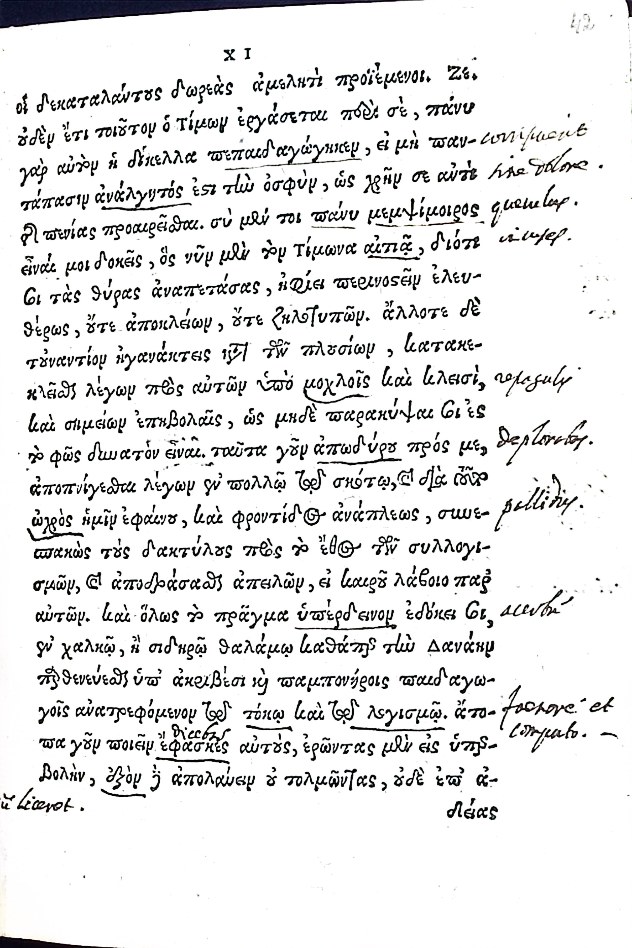 42
XI
οἱ δεκαταλάντους δωρεὰς ἀμελητὶ προϊέμενοι. Ζε.
οὐδὲν ἔτι τοιοῦτον ὁ Τίμων ἐργάσεται πρὸς σὲ, πάνυ
γὰρ αὐτὸν ἡ δίκελλα πεπαιδαγώγηκεν, εἰ μὴ παν-
τάπασιν ἀνάλγητός ἐστι τὴν ὀσφὺν, ὡς χρῆν σε αὐτὶ sine dolore.
πενίας προαιρεῖσθαι. σὺ μέν τοι πάνυ μεμψίμοιρος
εἶναί μοι δοκεῖς, ὃς νῦν μὲν τὸν Τίμωνα αἰτιᾷ, διότι
σοι τὰς θύρας ἀναπετάσας, ἠφίει περινοστεῖν ἐλευ-
θέρως, οὔτε ἀποκλείων, οὔτε ζηλοτυπῶν. ἄλλοτε δὲ
τοὐναντίον ἠγανάκτεις κατὰ τῶν πλουσίων, κατακε-
κλεῖσθαι λέγων πρὸς αὐτῶν ὑπὸ μοχλοῖς καὶ κλεισὶ,
καὶ σημείων ἐπιβολαῖς, ὡς μηδὲ παρακύψαι σοι ἐς
τὸ φῶς δυνατὸν εἶναι. ταῦτα γοῦν ἀπωδύρου πρός με,
ἀποπνίγεσθαι λέγων ἐν πολλῷ τῷ σκότῳ, καὶ διὰ τοῦτο
ὠχρὸς ἡμῖν ἐφαίνου, καὶ φροντίδος ἀνάπλεως, συνε-
σπακὼς τοὺς δακτύλους πρὸς τὸ ἔθος τῶν συλλογι-
σμῶν, καὶ ἀποδράσασθαι ἀπειλῶν, εἰ καιροῦ λάβοιο παρ'
αὐτῶν. καὶ ὅλως τὸ πρᾶγμα ὑπέρδεινον ἐδόκει σοι,
ἐν χαλκῷ, ἢ σιδηρῷ θαλάμῳ καθάπερ τὴν Δανάην
παρθενεύεσθαι ὑπ' ἀκριβέσι καὶ παμπονήροις παιδαγω-
γοῖς ἀνατρεφόμενον τῷ τόκῳ καὶ τῷ λογισμῷ. ἄτο- foenore et
computo.
dicebas
πα γοῦν ποιεῖν ἔφασκες αὐτοὺς, ἐρῶντας μὲν εἰς ὑπερ-
βολὴν, ἐξὸν δὲ ἀπολαύειν οὐ τολμῶντας, οὐδὲ ἐπ' ἀ-
δείας
liceret.